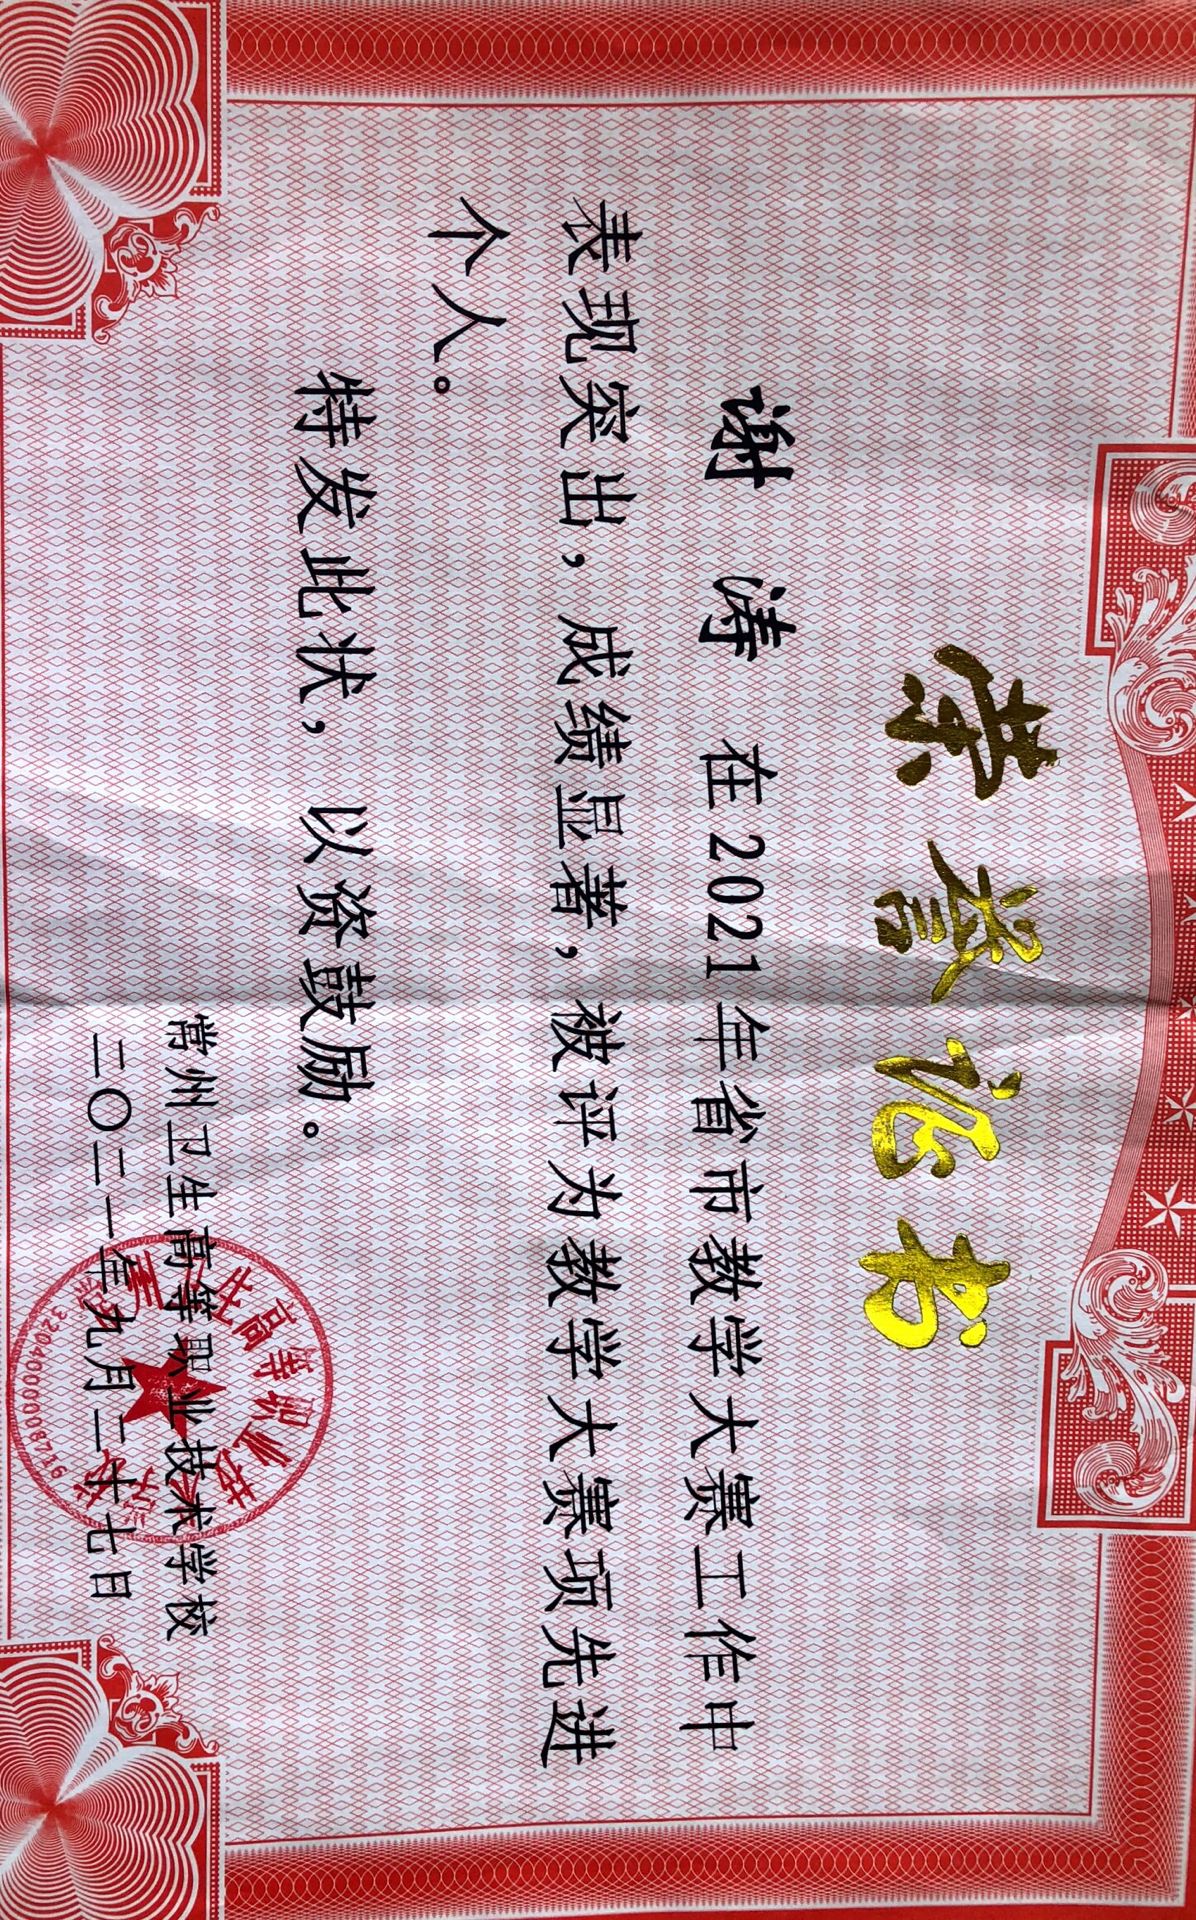 荣誉证书
谢 涛 在2021年省市教学大赛工作中
表现突出，成绩显著，被评为教学大赛项先进
个人。
特发此状，以资鼓励。
常州卫生高等职业技术学校
二〇二一年九月二十七日
3204000008716